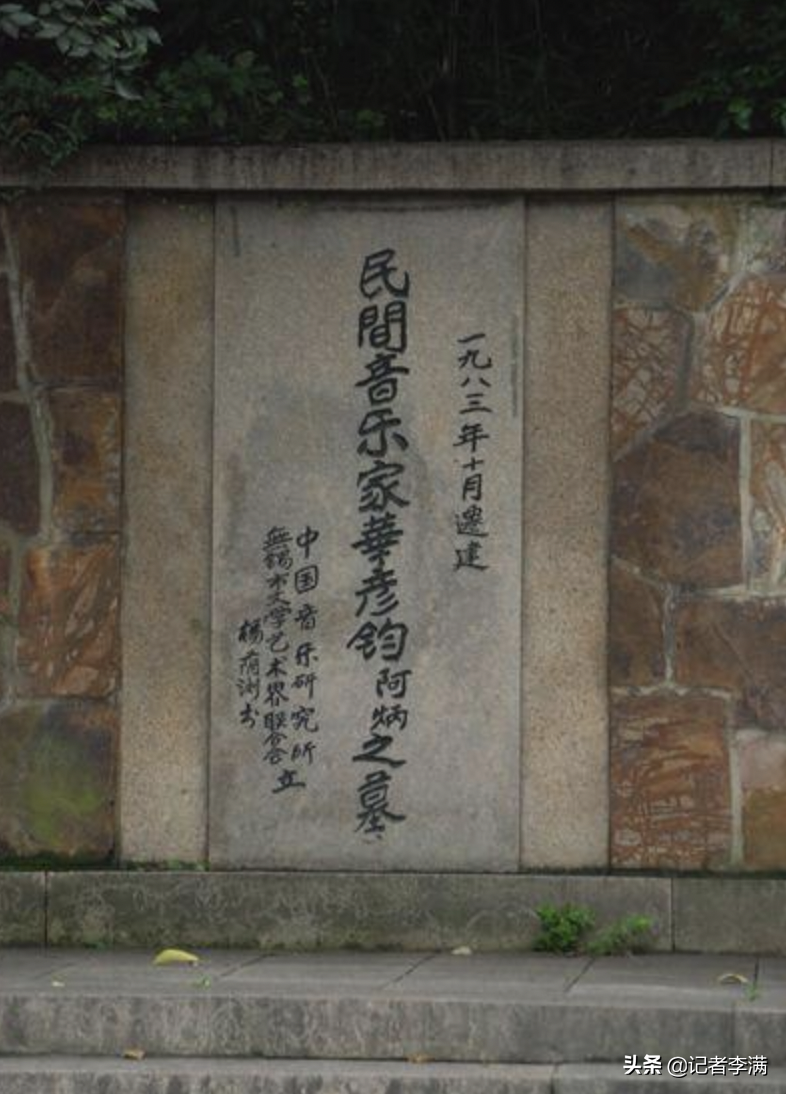 一九八三年十月遷建
民間音乐家華彦钧阿炳之墓
中国音乐研究所
無锡市文学艺术界联合会立
楊荫浏书
头条 @记者李满